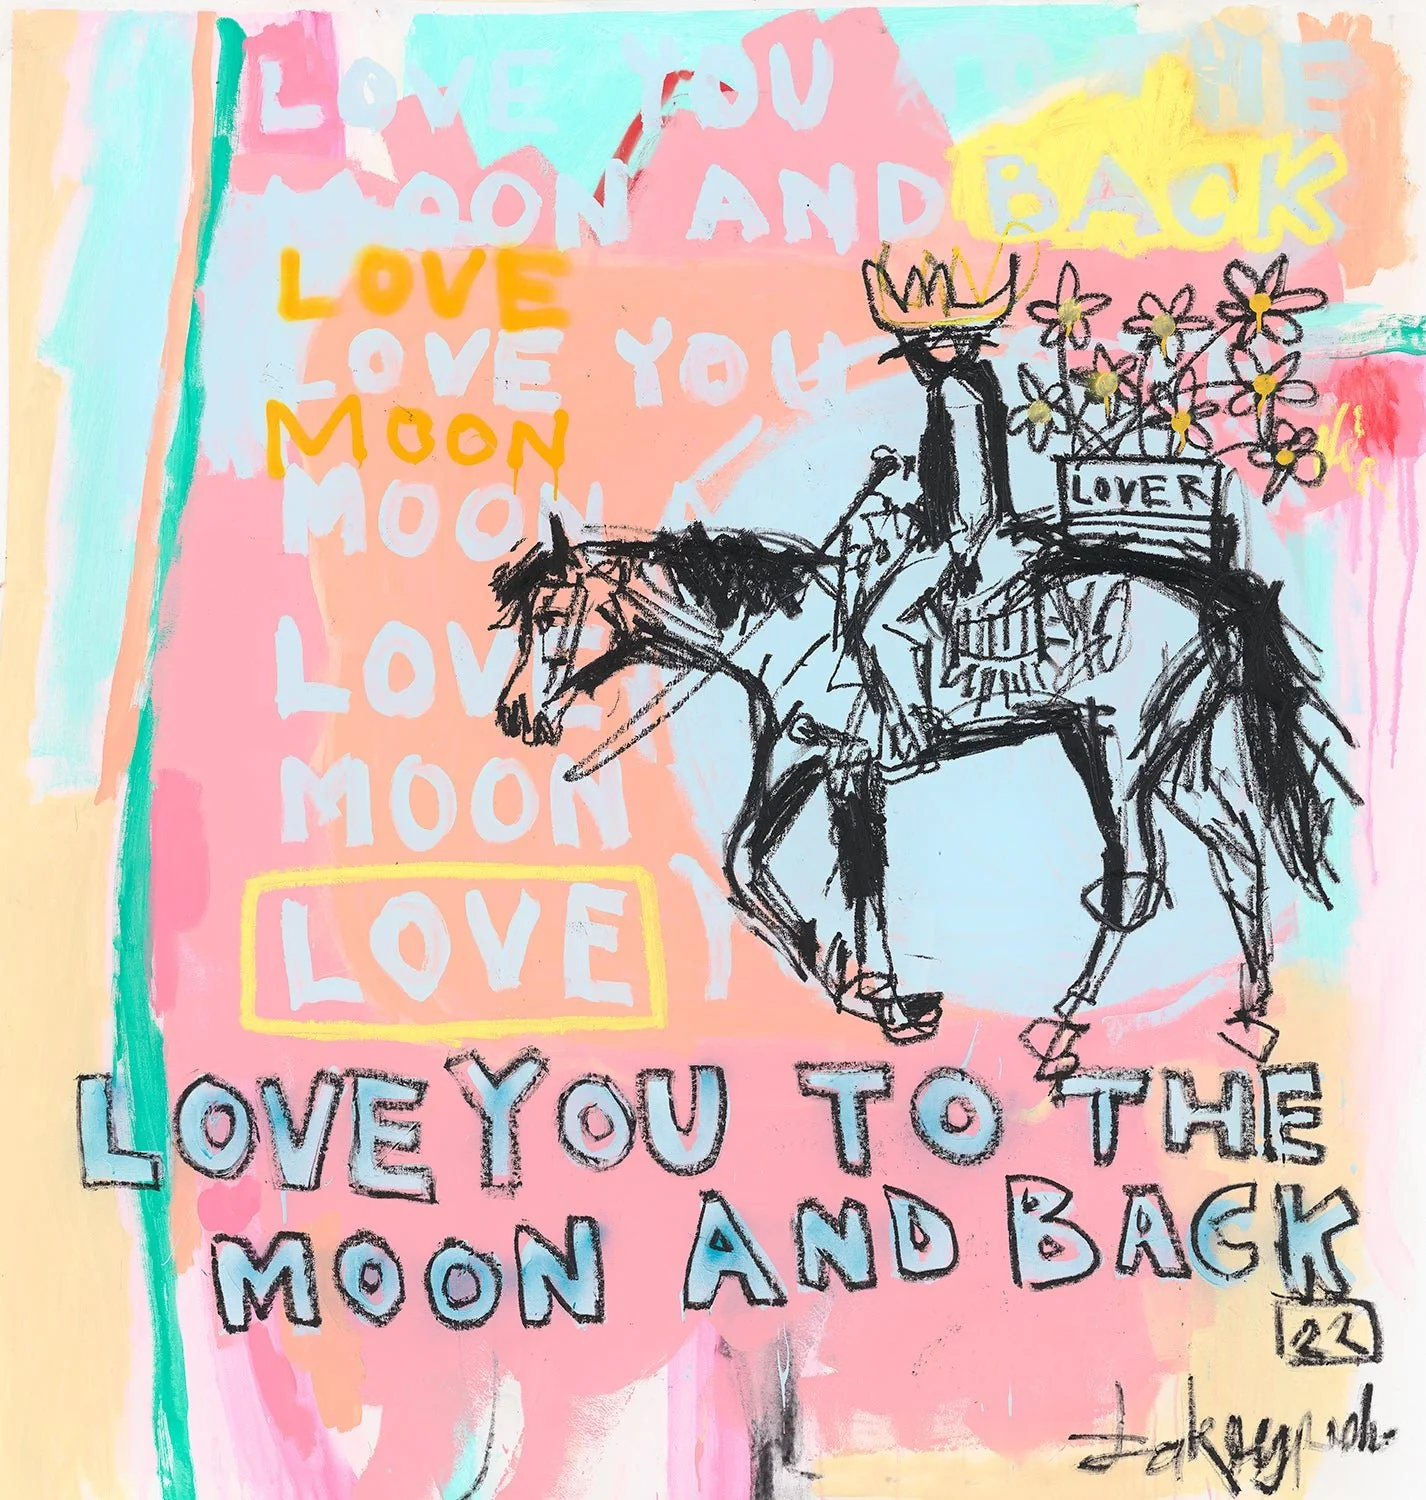 LOVE YOU TO THE
MOON AND BACK
LOVE
LOVE YOU
MOON
MOON A
LOVER
LOVE
MOON
LOVE
LOVE YOU TO THE
MOON AND BACK
22